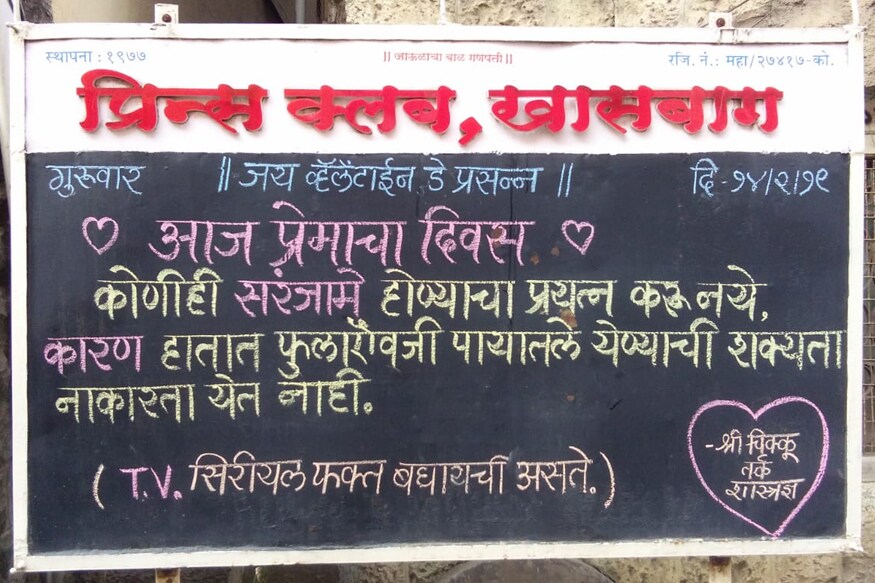 स्थापना : १९७७ || जाऊळाचा बाळ गणपती || रजि. नं.: महा/२७४१७-को.
प्रिन्स क्लब, खासबाग
गुरूवार || जय व्हॅलेंटाईन डे प्रसन्न || दि - १४/२/१९
आज प्रेमाचा दिवस
कोणीही सरंजामे होण्याचा प्रयत्न करू नये,
कारण हातात फुलाऐवजी पायातले येण्याची शक्यता
नाकारता येत नाही.
( T.V. सिरीयल फक्त बघायची असते. )
- श्री चिक्कू
तर्क
शास्त्रज्ञ